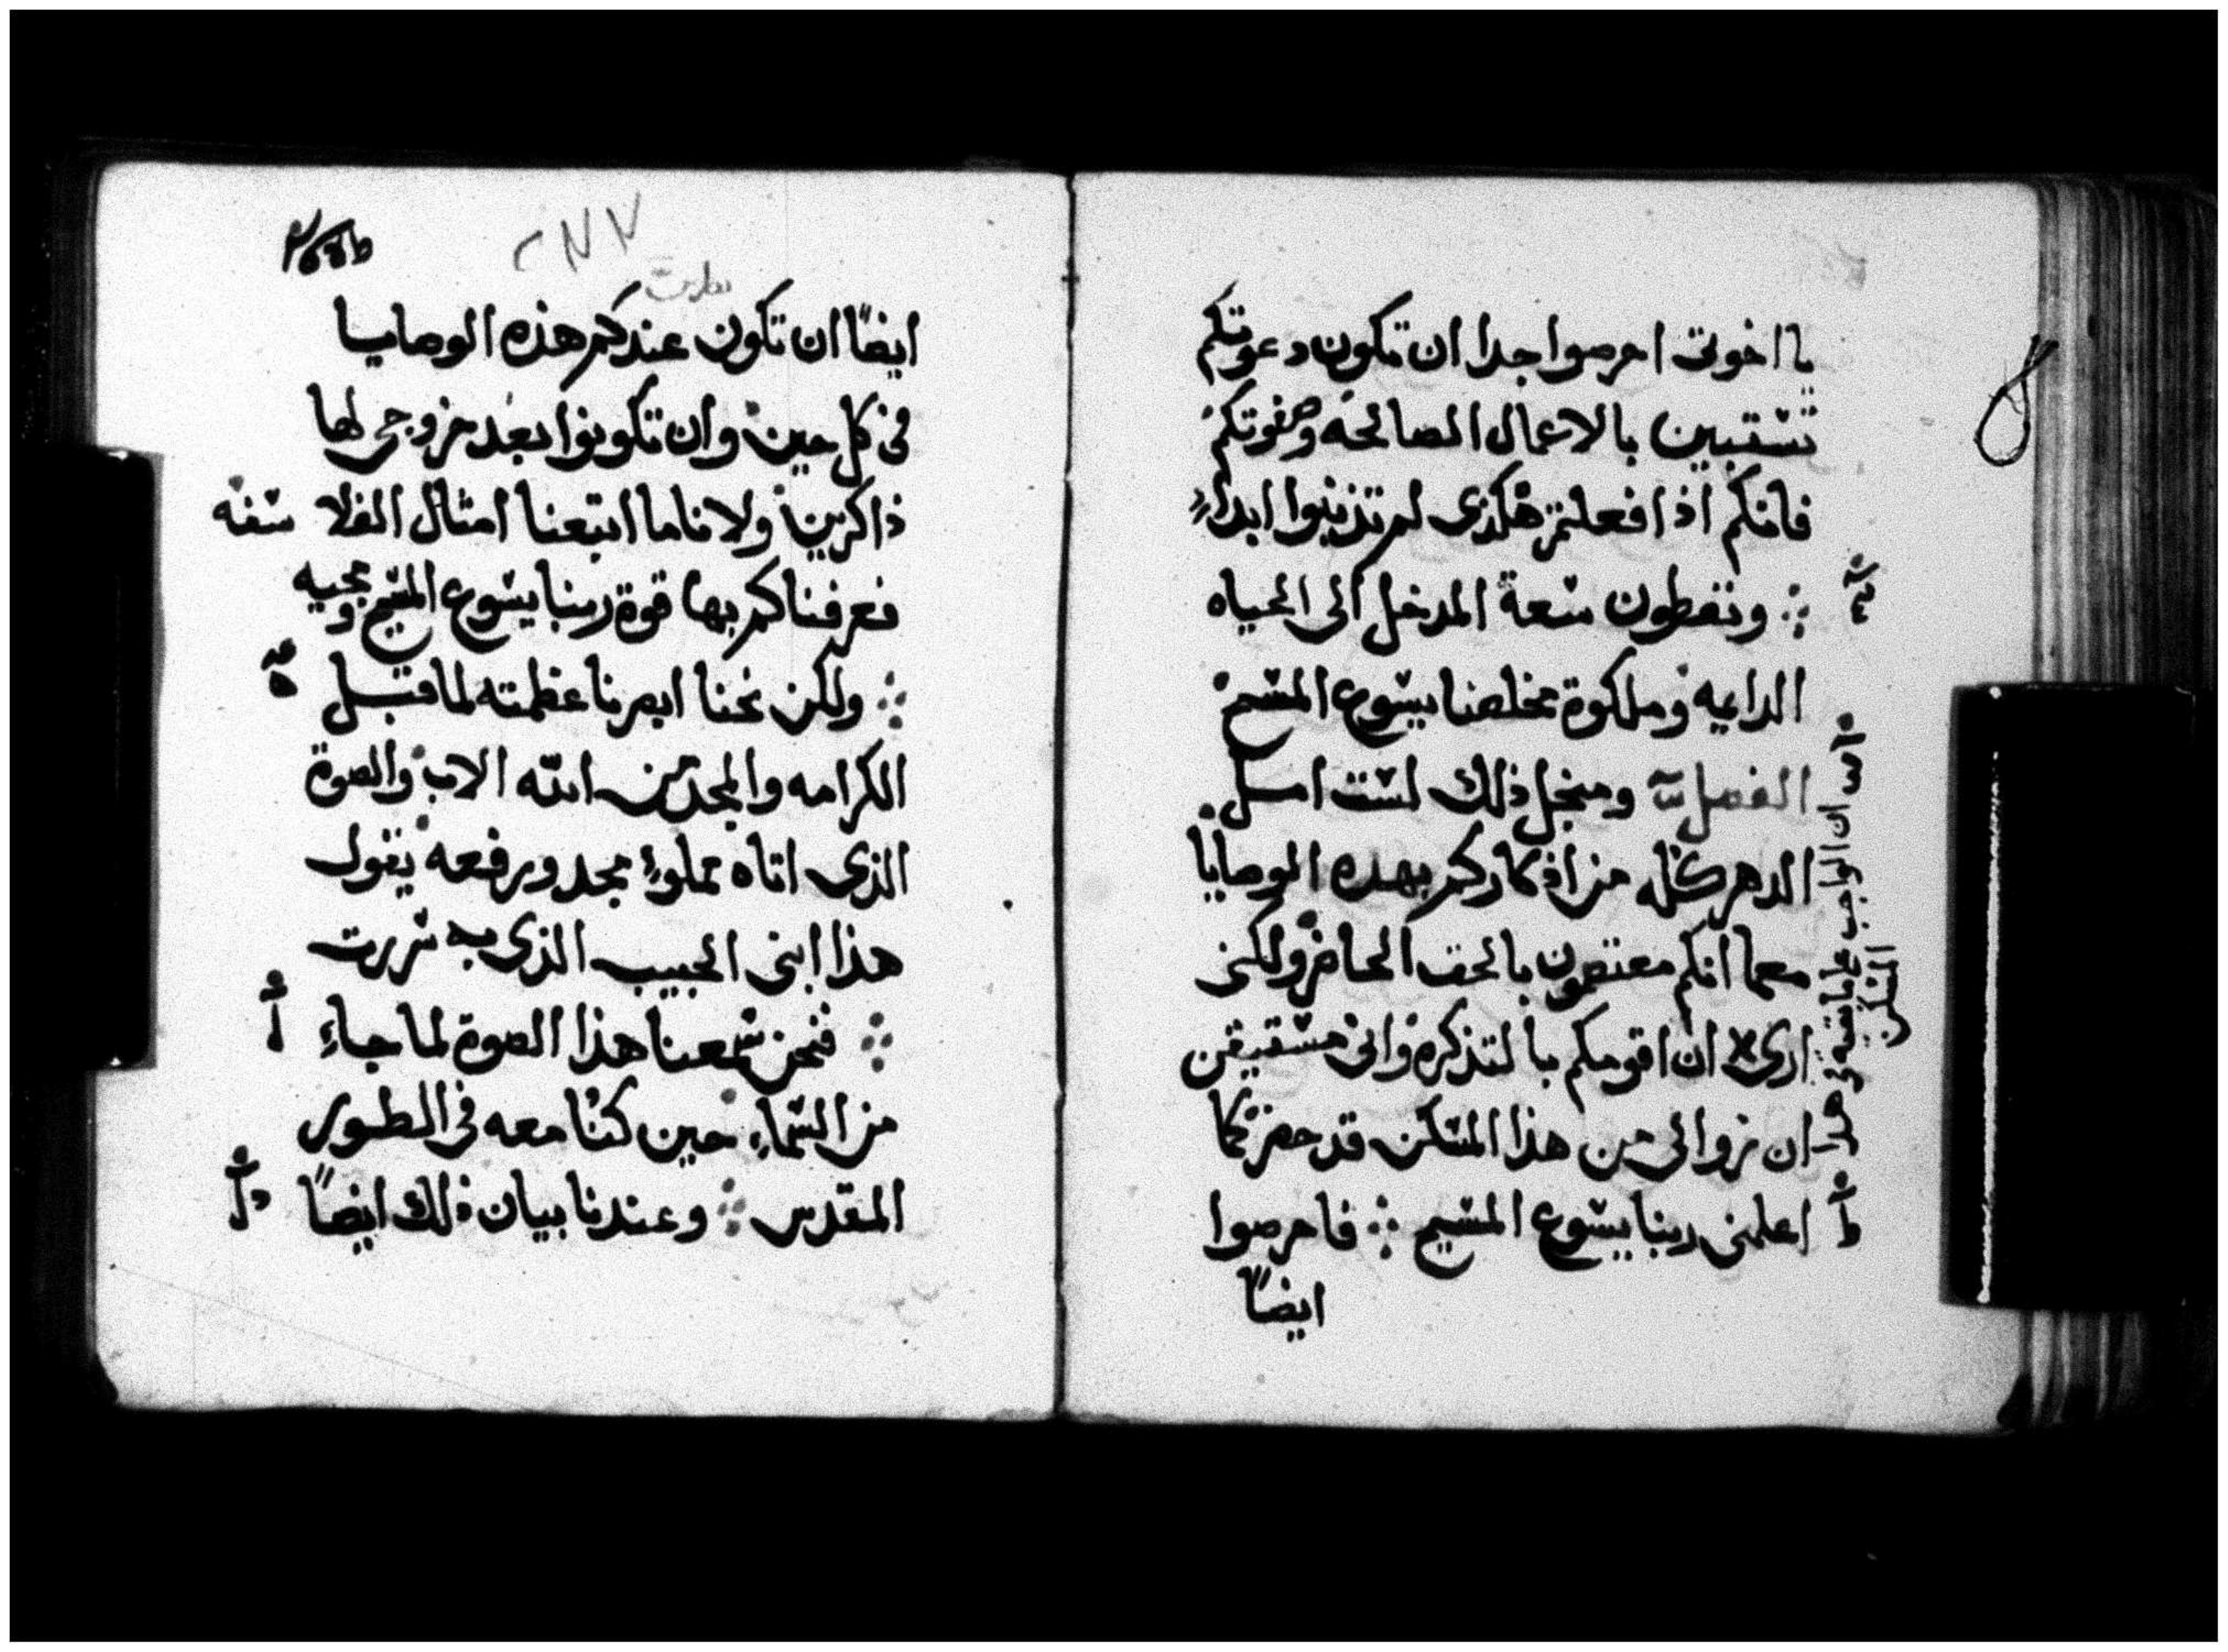 يا اخوتى احرصوا جدا ان تكون دعوتكم
تستبين بالاعمال الصالحه وصفوتكم
فانكم اذا فعلتم هكذى لم تذنبوا ابداً
وتعطون سعة المدخل الى الحياه
الدايمه وملكوة مخلصنا يسوع المسيح
الفصل ومنجل ذلك لست امل
الدهر كله من اذكاركم بهذه الوصايا
معما انكم معتصمون بالحق الحاضر ولكنى
ارى ان اقومكم بالتذكره وانى مستيقن
ان زوالى من هذا المسكن قد حضر كما
اعلمنى ربنا يسوع المسيح فاحرصوا
ايضاً
ان الواجب على ما اشته فى هذا
المسكن
٢٧٧
ايضاً ان تكون عندكم هذه الوصايا
فى كل حين وان تكونوا بعد خروجى لها
ذاكرين ولاناما اتبعنا امثال الفلاسفه
فعرفناكم بها قوة ربنا يسوع المسيح ومجيه
ولكن نحنا ابصرنا عظمته لما قبل
الكرامه والمجد من الله الاب والصوة
الذى اتاه مملوءٍ مجد ورفعه يقول
هذا ابنى الحبيب الذى به سررت
فنحن سمعنا هذا الصوة لما جاء
من السماء حين كنا معه فى الطور
المقدس وعندنا بيان ذلك ايضاً